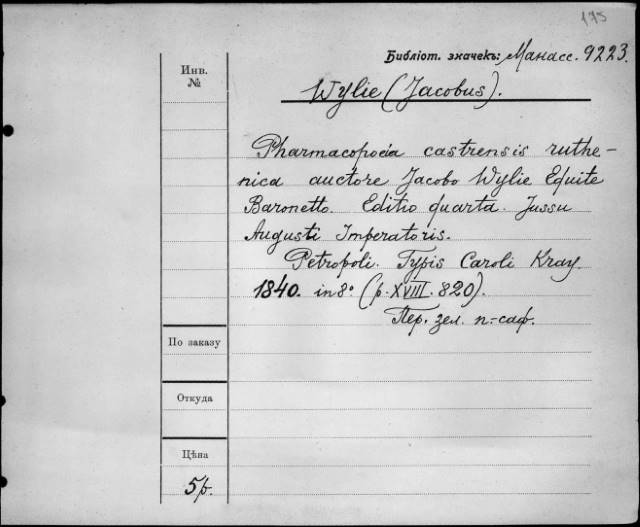 175
Библіот. значекъ: Манасс. 9223.
Инв.
№
Wylie (Jacobus).
Pharmacopoeia castrensis ruthe-
nica auctore Jacobo Wylie Equite
Baronetto. Editio quarta. Jussu
Augusti Imperatoris.
Petropoli. Typis Caroli Kray.
1840. in 8° (p. XVIII. 820).
Пер. зел. п.-саф.
По заказу
Откуда
Цѣна
5р.